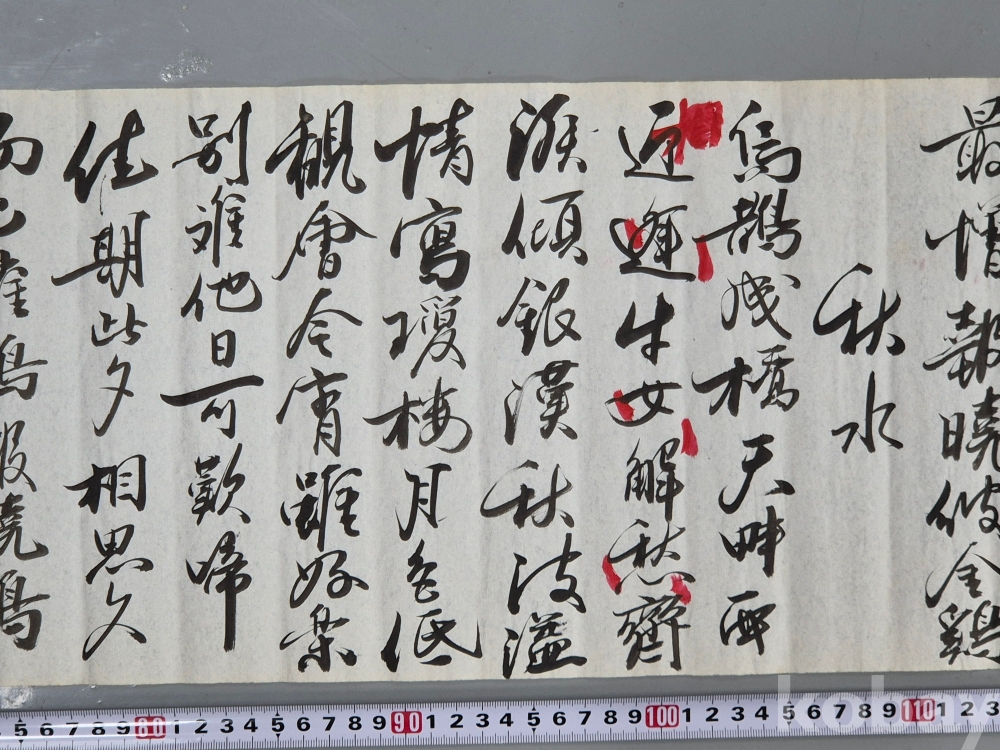 最憎報曉彼金鷄
秋水
烏鵲成橋天畔西
迎運牛女解愁齊
傾銀漢秋波溢
情寫瓊樓月色低
會今宵雖好楽
別離他日可歎啼
佳期此夕相思久
報曉
5 6 7 8 9 80 1 2 3 4 5 6 7 8 9 90 1 2 3 4 5 6 7 8 9 100 1 2 3 4 5 6 7 8 9 110 1 2 3